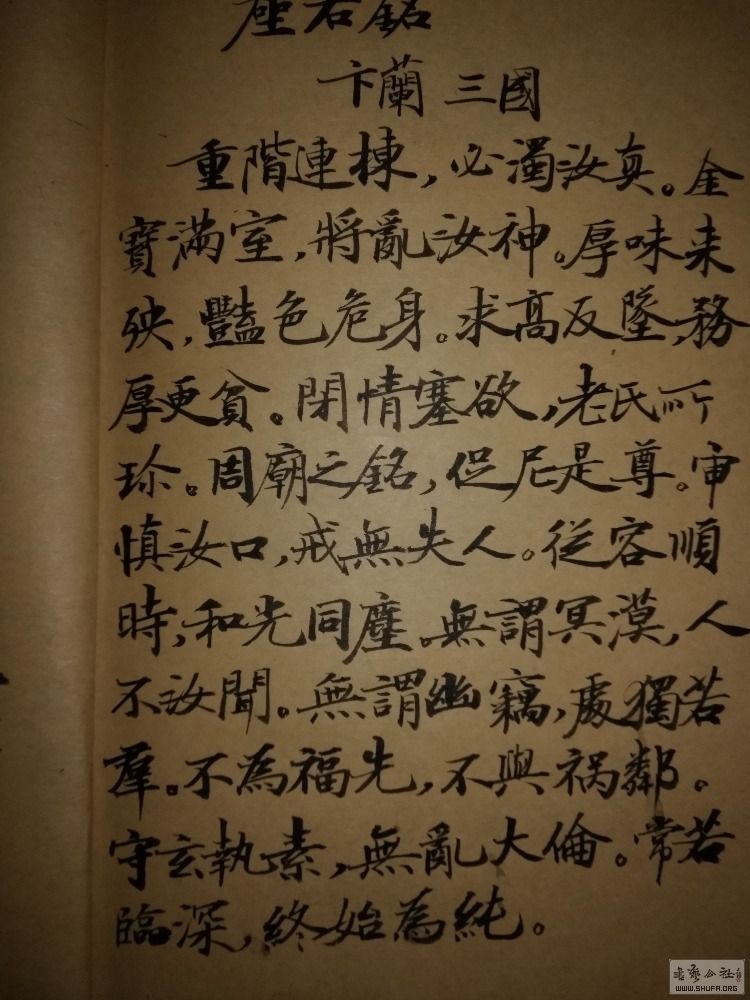 座右銘
卞蘭 三國
重階連棟，必濁汝真。金
寶滿室，將亂汝神。厚味来
殃，豔色危身。求高反墜，務
厚更貧。閉情塞欲，老氏所
珎。周廟之銘，仲尼是尊。审
慎汝口，戒無失人。從容順
時，和光同塵。無謂冥漠，人
不汝聞。無謂幽窈，處獨若
羣。不為福先，不與祸鄰。
守玄執素，無亂大倫。常若
臨深，終始為純。
WWW.SHUFA.ORG